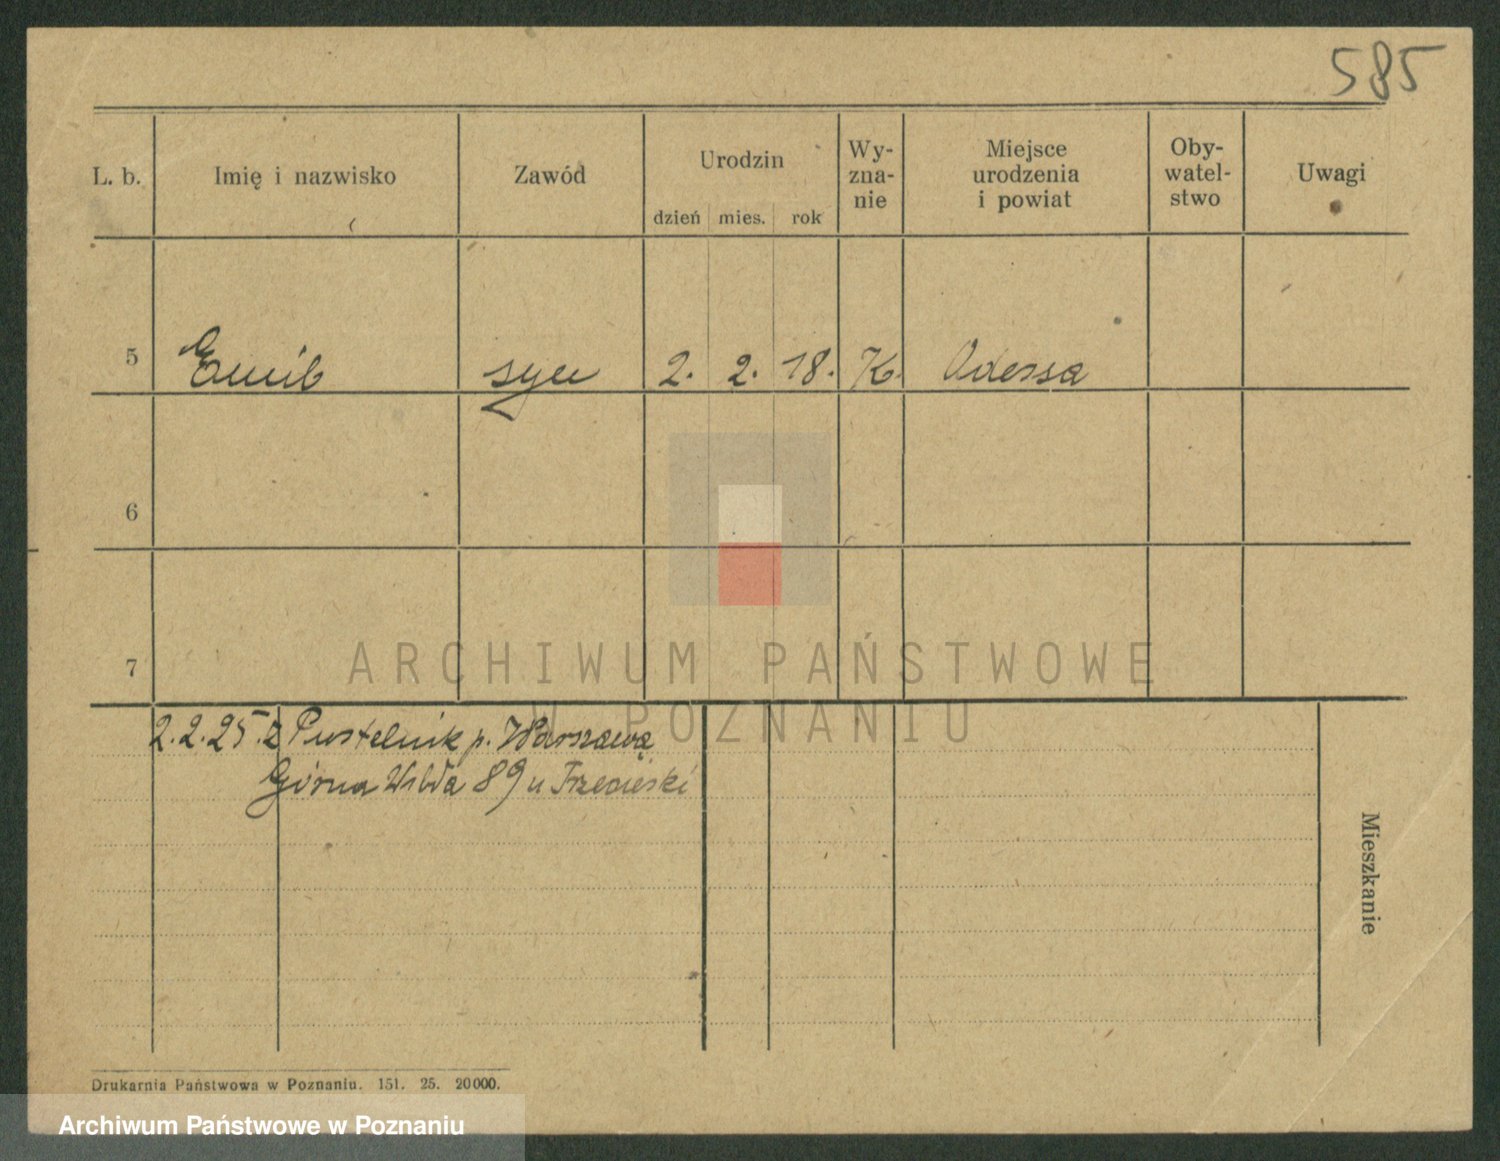 585
L. b. Imię i nazwisko Zawód Urodzin Wy-zna-nie Miejsce urodzenia i powiat Oby-watel-stwo Uwagi
dzień mies. rok
5 Emil syn 2. 2. 18. K. Odessa
6
7
ARCHIWUM PAŃSTWOWE
W POZNANIU
2.2.25. z Pustelnik p. Warszawą
Górna Wilda 89 u Trzecieski
Mieszkanie
Drukarnia Państwowa w Poznaniu. 151. 25. 20000.
Archiwum Państwowe w Poznaniu